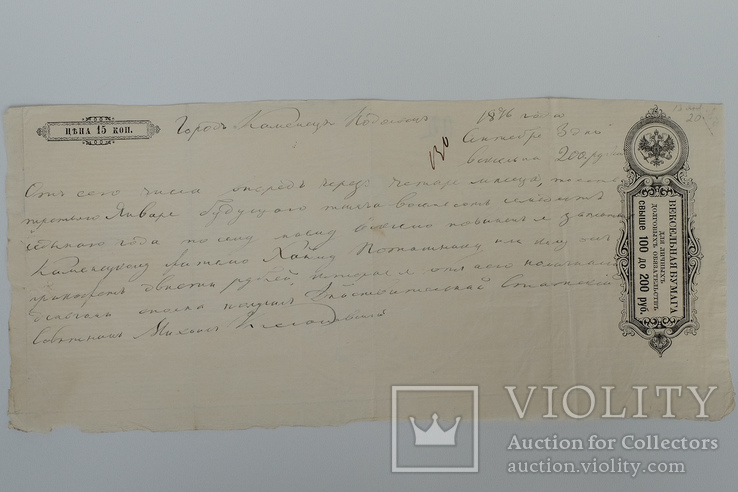 ЦѢНА 15 КОП.
Городъ Каменецъ Подольск 1876 года
Сентября 3 дня
вексель на 200 руб
130
20
Отъ сего числа впредь чрезъ четыре месяца, то есть
третьяго Января будущаго тысяча восемьсот семдесятъ
седьмаго года по сему моему векселю повиненъ я заплатить
Каменецкому жителю Хаиму или кому онъ
прикажетъ двести рублей, которые я отъ него наличными
деньгами сполна получилъ Действительный Статский
Советникъ Михаилъ
ВЕКСЕЛЬНАЯ БУМАГА
ДЛЯ ЛИЧНЫХЪ
ДОЛГОВЫХЪ ОБЯЗАТЕЛЬСТВЪ
СВЫШЕ 100 ДО 200 РУБ.
VIOLITY
Auction for Collectors
auction.violity.com